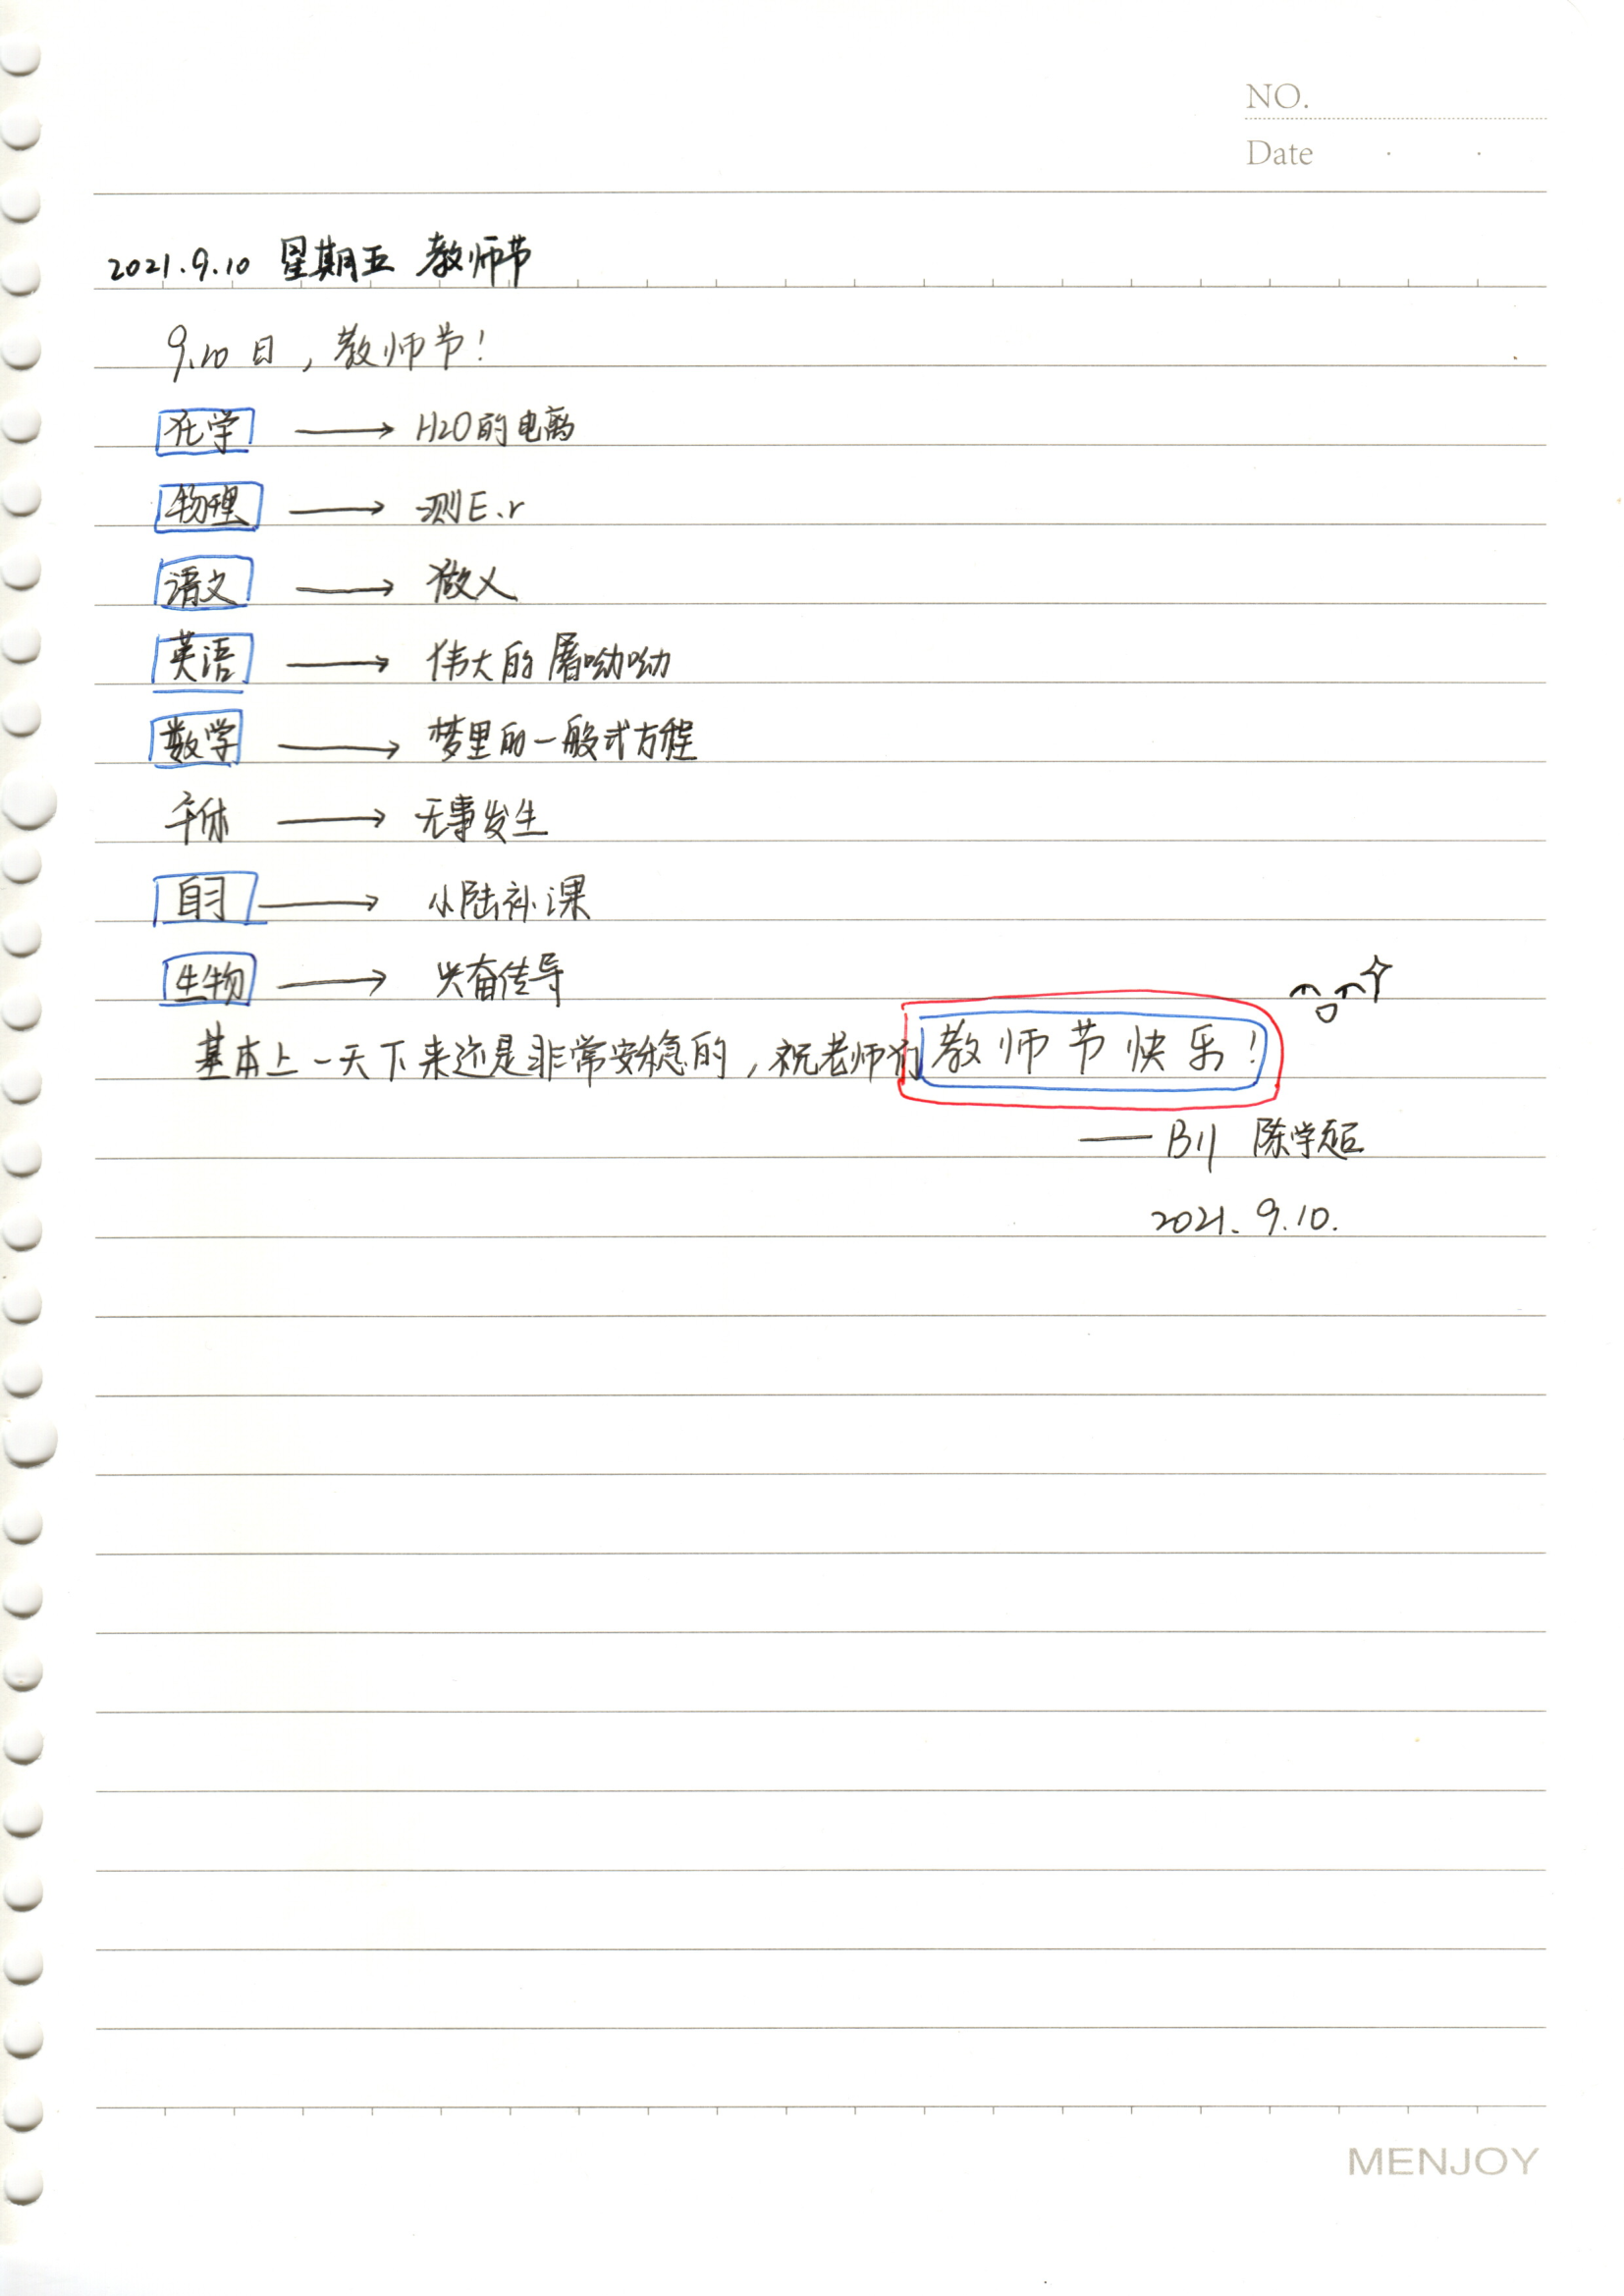 NO.
Date
2021.9.10 星期五 教师节
9.10日，教师节！
化学 → H2O的电离
物理 → 测E.r
语文 → 做人
英语 → 伟大的屠呦呦
数学 → 梦里的一般式方程
午休 → 无事发生
自习 → 小陆补课
生物 → 兴奋传导
基本上一天下来还是非常安稳的，祝老师们教师节快乐！
—— B11 陈学超
2021.9.10.
MENJOY